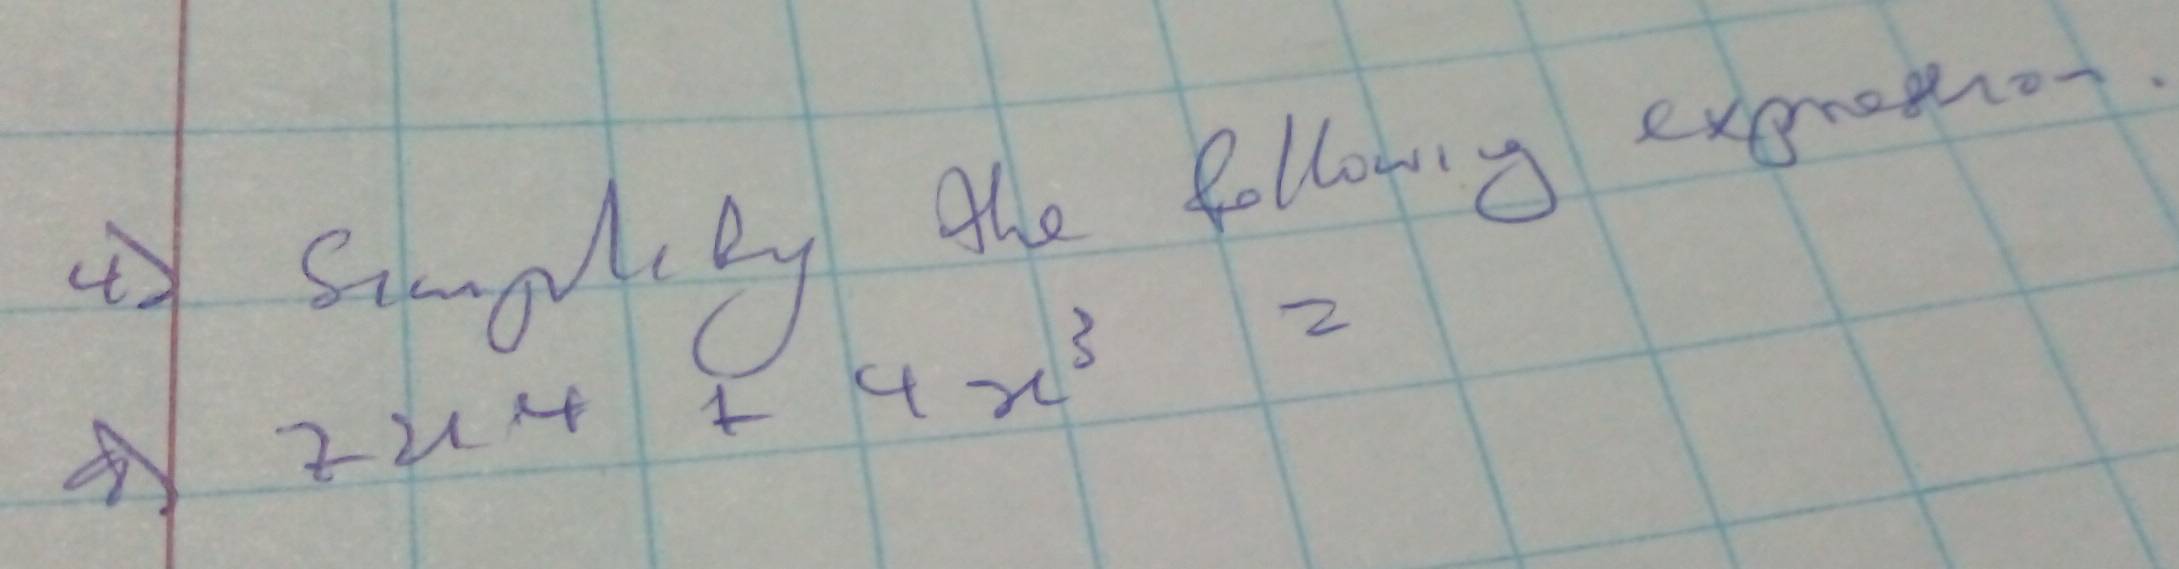 4) Simplify the following expression.
a) 7x⁴ + 4x³ =